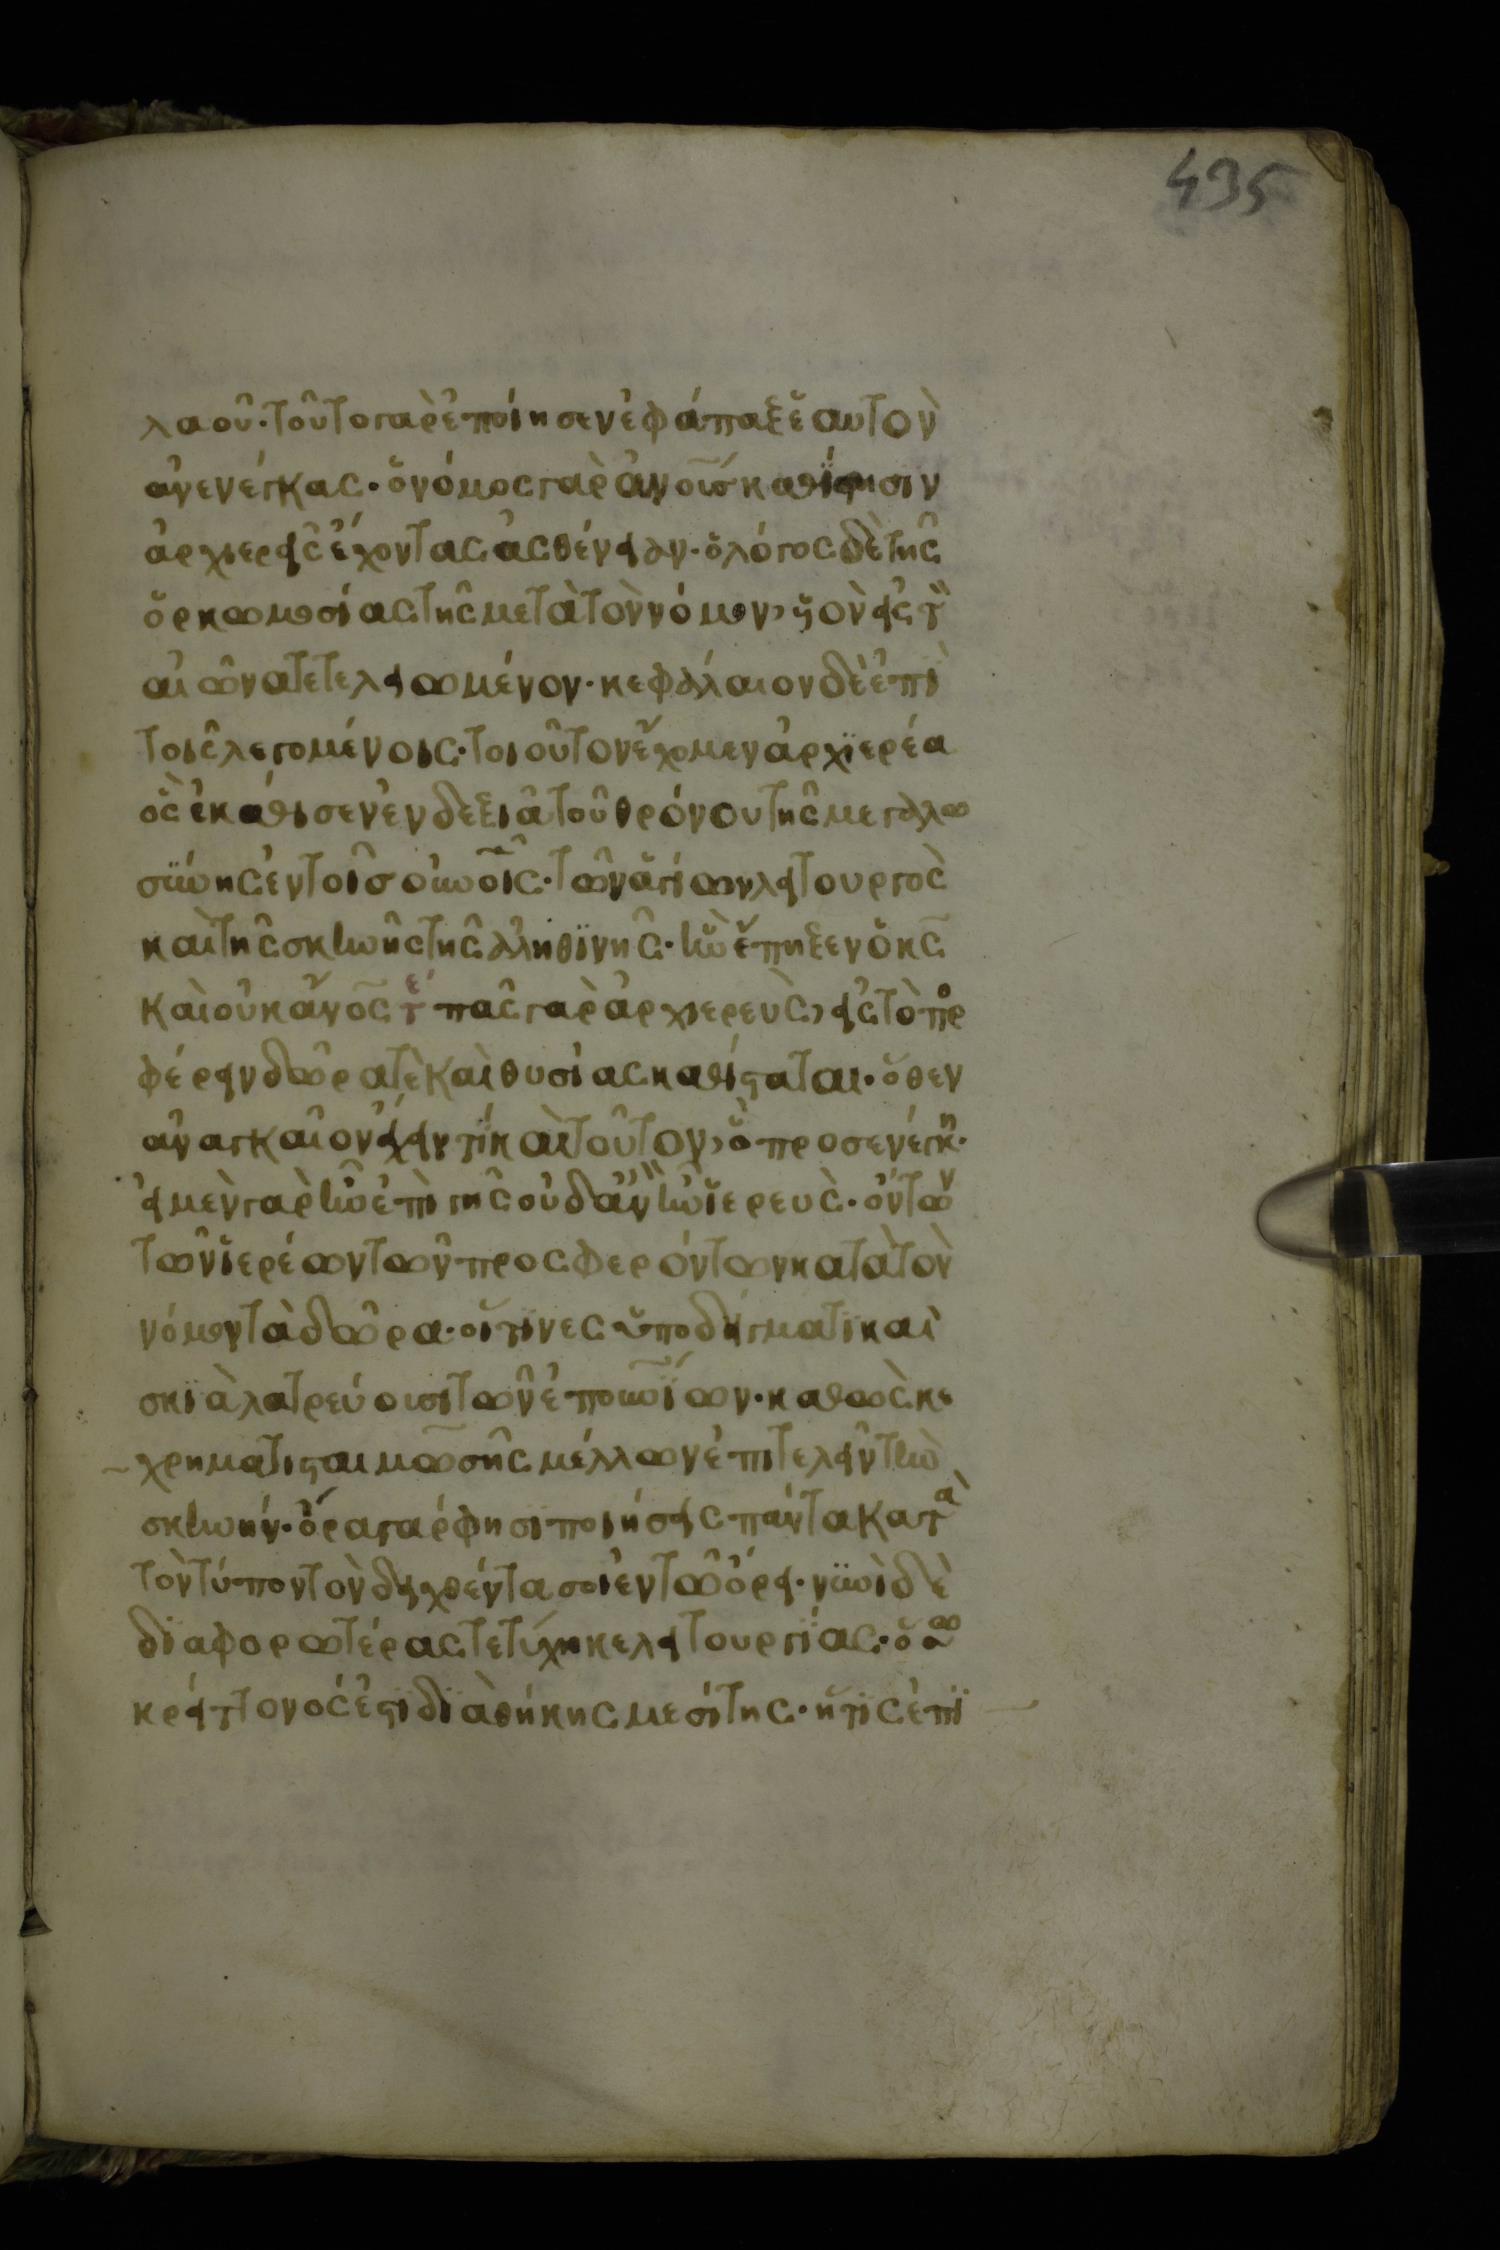 435
λαοῦ· τοῦτο γὰρ ἐποίησεν ἐφάπαξ ἑαυτὸν
ἀνενέγκας· ὁ νόμος γὰρ ἀν̅ο̅υ̅ς καθίστησιν
ἀρχιερεῖς ἔχοντας ἀσθένειαν· ὁ λόγος δὲ τῆς
ὁρκωμοσίας τῆς μετὰ τὸν νόμον, υἱὸν εἰς τὸν
αἰῶνα τετελειωμένον· κεφάλαιον δὲ ἐπὶ
τοῖς λεγομένοις· τοιοῦτον ἔχομεν ἀρχϊερέα
ὃς ἐκάθισεν ἐν δεξιᾶ τοῦ θρόνου τῆς μεγαλω
σύνης ἐν τοῖς ο̅υ̅ν̅ο̅ι̅ς· τῶν ἁγίων λειτουργὸς
καὶ τῆς σκηνῆς τῆς ἀληθϊνῆς· ἣν ἔπηξεν ὁ κ̅ς̅
καὶ οὐκ ἄν̅ο̅ς τε πᾶς γὰρ ἀρχιερεὺς, εἰς τὸ προ
φέρειν δῶρά τὲ καὶ θυσίας καθίσταται· ὅθεν
ἀναγκαῖον ἔχειν τὶ καὶ τοῦτον, ὃ προσενέγκη·
εἰ μὲν γὰρ ἦν ἐπὶ γῆς οὐδ' ἂν ἦν ἱερευς· ὄντων
τῶν ἱερέων τῶν προσφερόντων κατὰ τὸν
νόμον τὰ δῶρα· οἵτινες ὑποδείγματϊ καὶ
σκϊᾶ λατρεύουσι τῶν ἐπο̅υ̅ν̅ϊων· καθὼς κε
χρημάτισται μωσῆς μέλλων ἐπιτελεῖν τὴν
σκηνήν· ὅρα γάρ φησϊ ποιήσεις πάντα κατὰ
τὸν τύπον τὸν δειχθέντα σοι ἐν τῶ ὄρει· νυνὶ δὲ
δϊαφορωτέρας τετύχηκε λειτουργϊας· ὅσω
κρείττονός ἐστϊ δϊαθήκης μεσίτης· ἥτϊς ἐπϊ